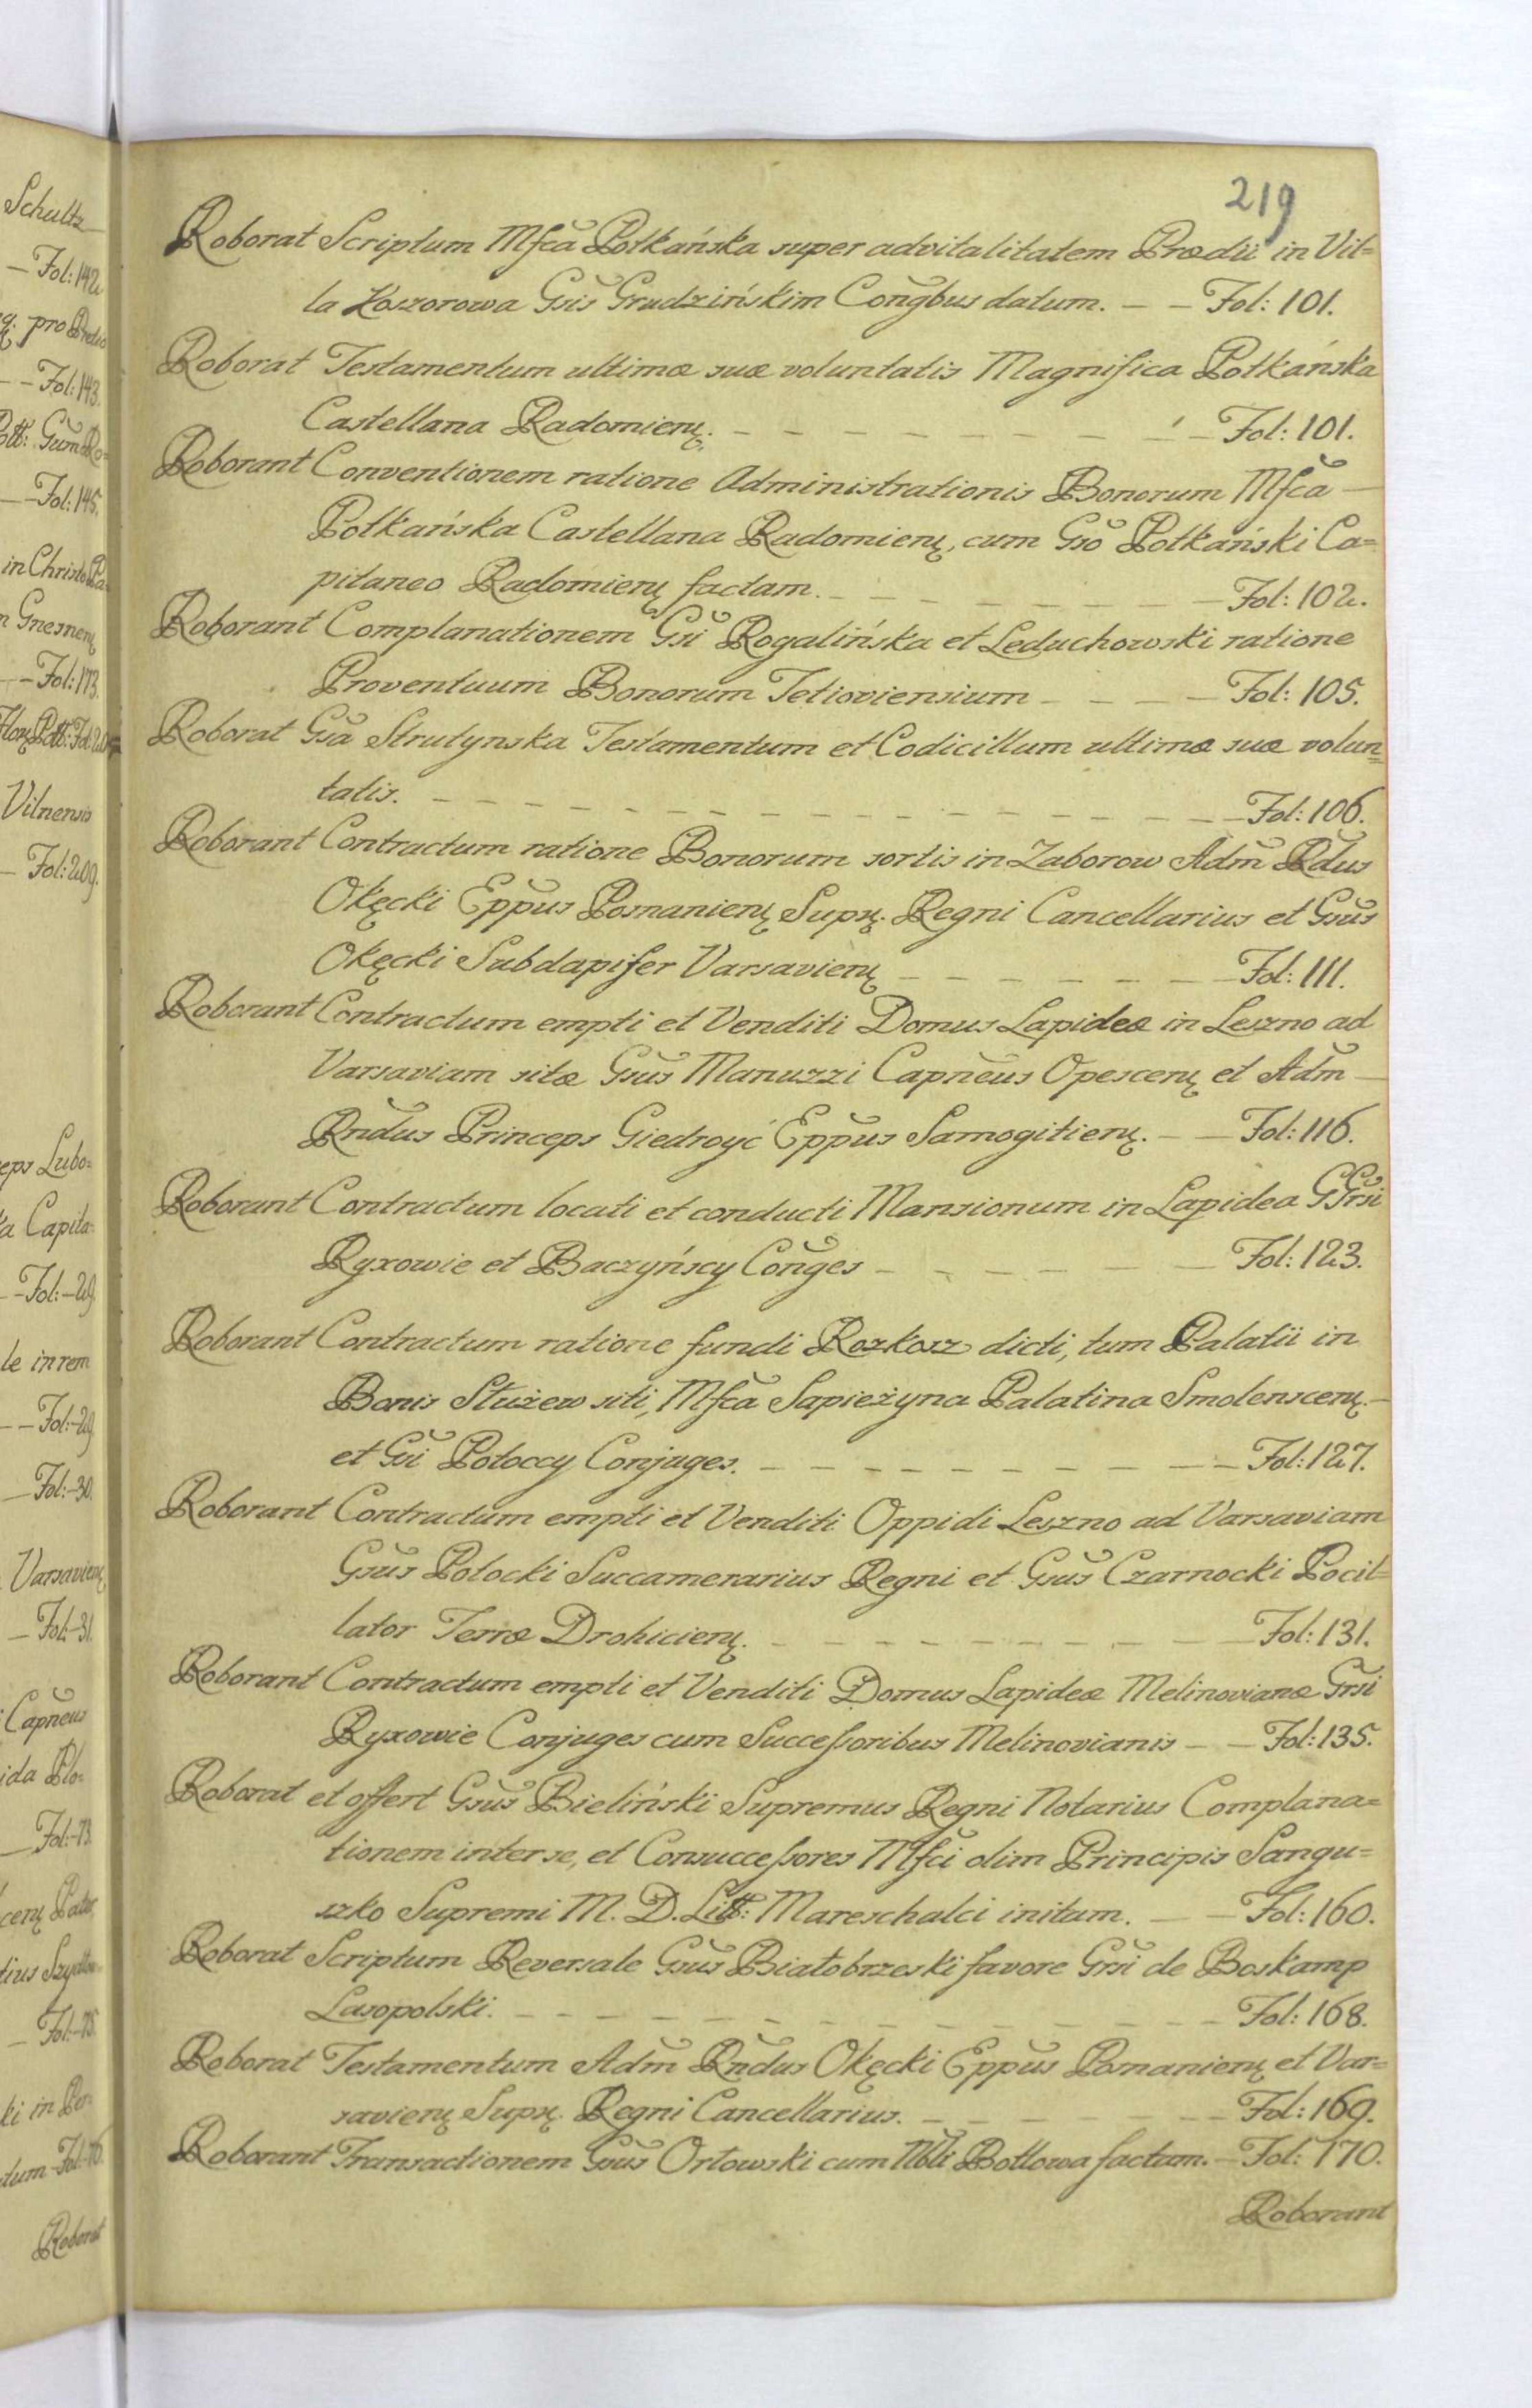 219
Roborat Scriptum Mfca Potkańska super advitalitatem Prædii in Vil=
la Koszorowa Gsis Grudzińskim Congbus datum. — — Fol: 101.
Roborat Testamentum ultimæ suæ voluntatis Magnifica Potkańska
Castellana Radomien. — Fol: 101.
Roborant Conventionem ratione Administrationis Bonorum Mfca
Potkańska Castellana Radomien, cum Gso Potkański Ca=
pitaneo Radomien factam. — Fol: 102.
Roborant Complanationem Gsi Rogalińska et Leduchowski ratione
Proventuum Bonorum Tetioviensium — Fol: 105.
Roborat Gsa Strutynska Testamentum et Codicillum ultimæ suæ volun=
tatis. — Fol: 106.
Roborant Contractum ratione Bonorum sortis in Zaborow Adm Rdus
Okęcki Eppus Posnanien Supr. Regni Cancellarius et Gsus
Okęcki Subdapifer Varsavien — Fol: 111.
Roborant Contractum empti et Venditi Domus Lapideæ in Leszno ad
Varsaviam sitæ Gsus Manuzzi Capneus Opescen et Adm
Rndus Princeps Giedroyć Eppus Samogitien. — Fol: 116.
Roborant Contractum locati et conducti Mansionum in Lapidea GGrsi
Ryxowie et Baczyńscy Conges — Fol: 123.
Roborant Contractum ratione fundi Rozkosz dicti, tum Palatii in
Bonis Służew siti, Mfca Sapieżyna Palatina Smolenscen.
et Gsi Potoccy Conjuges. — Fol: 127.
Roborant Contractum empti et Venditi Oppidi Leszno ad Varsaviam
Gsus Potocki Succamerarius Regni et Gsus Czarnocki Pocil=
lator Terræ Drohicien. — Fol: 131.
Roborant Contractum empti et Venditi Domus Lapideæ Melinovianæ Grsi
Ryxowie Conjuges cum Successoribus Melinovianis — — Fol: 135.
Roborat et offert Gsus Bieliński Supremus Regni Notarius Complana=
tionem inter se, et Consuccessores Mfci olim Principis Sangu=
szko Supremi M. D. Litt: Mareschalci initam. — — Fol: 160.
Roborat Scriptum Reversale Gsus Białobrzeski favore Grsi de Boskamp
Lasopolski. — Fol: 168.
Roborat Testamentum Adm Rndus Okęcki Eppus Posnanien et Var=
savien Supr. Regni Cancellarius. — Fol: 169.
Roborant Transactionem Gsus Orłowski cum Nbli Bottowa factam. — Fol: 170.
Roborant